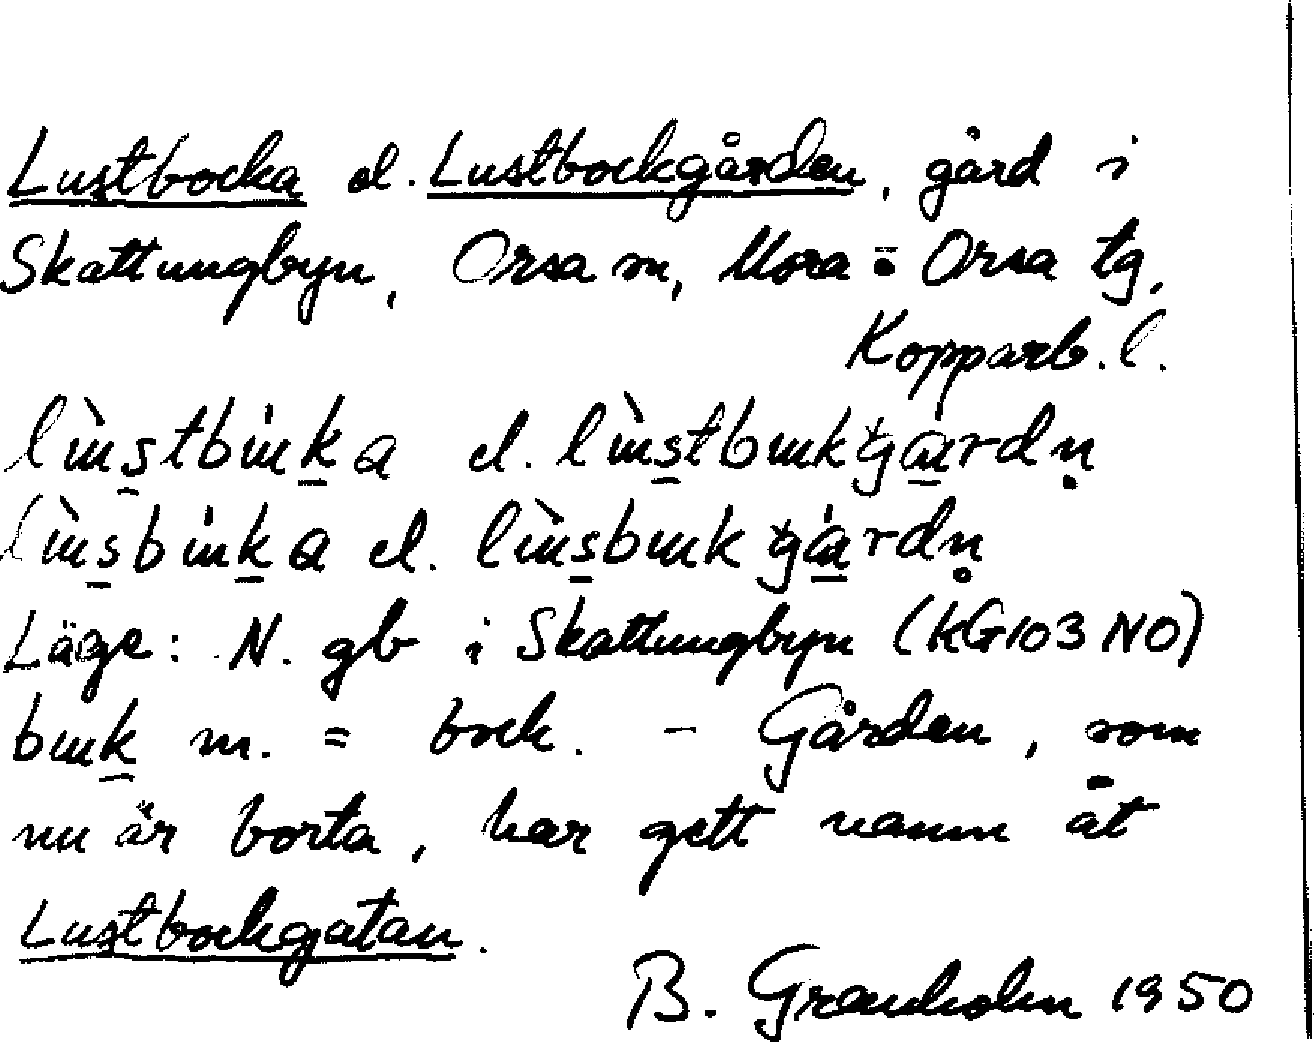 Lustbocka el. Lustbockgården, gård i
Skattungbyn, Orsa sn, Mora o. Orsa tg,
Kopparb. l.
lùstbúka el. lùstbukgárdn̥
lùsbúka el. lùsbukgárdn̥
Läge: N. gb i Skattungbyn (KG103 NO)
buk m. = bock. - Gården, som
nu är borta, har gett namn åt
Lustbockgatan.
B. Granholm 1950